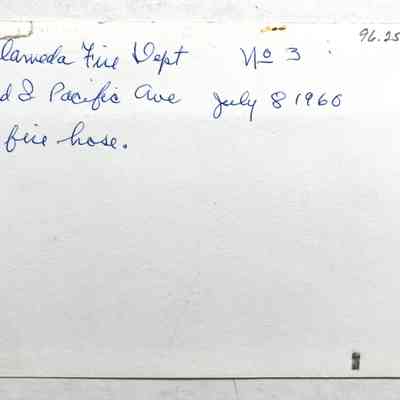 lameda Fire Dept No 3 96.25
d & Pacific Ave July 8 1960
fire hose.